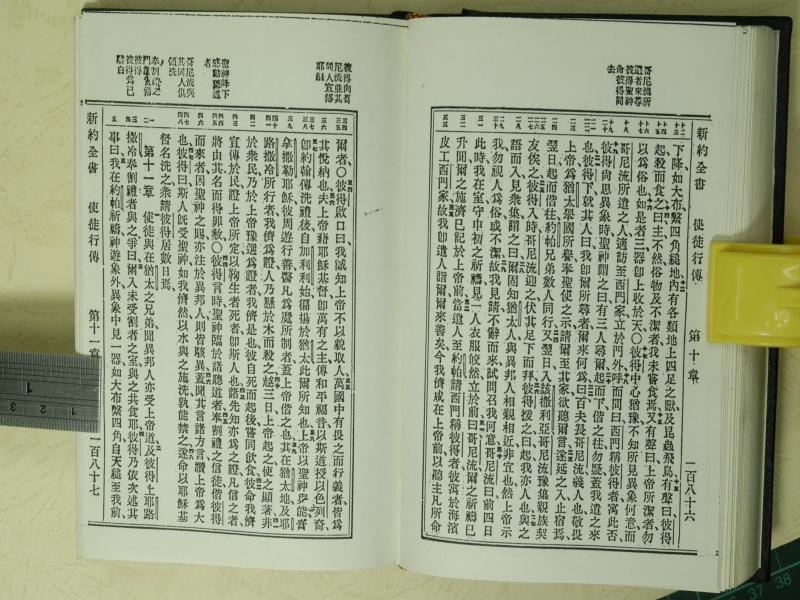 新約全書 使徒行傳 第十章 一百八十六
哥尼流所
遣者來尋
彼得聖神
命彼得同
去
下降如大布繫四角縋地內有各類地上四足之獸及昆蟲飛鳥有聲曰彼得
起殺而食之曰主不然俗物及不潔者我未嘗食焉又有聲曰上帝所潔者勿
以爲俗也如是者三器卽上收於天〇彼得中心猶豫不知所見異象何意而
哥尼流所遣之人適訪至西門家立於門外呼而問曰西門稱彼得者寓此否
彼得尙思異象時聖神謂之曰有三人尋爾起而下偕之往勿疑蓋我遣之來
也彼得下就其人曰我卽爾所尋者爾來何爲曰百夫長哥尼流義人也敬畏
上帝爲猶太舉國所譽奉聖使之示請爾至其家欲聽爾言遂延之入止宿焉
翌日起而偕往約帕兄弟數人同行又翌日入該撒利亞哥尼流豫集親族契
友俟之彼得入時哥尼流迎之伏其足下而拜彼得援之曰起我亦人也與之
語而入見衆集謂之曰爾固知猶太人與異邦人相親相近非宜也然上帝示
我勿視人爲俗或不潔故我見請不辭而來試問召我何意哥尼流曰前四日
此時我在室守申初之祈禱見一人衣服皎然立於前曰哥尼流爾之祈禱已
升聞爾之施濟已記於上帝前當遣人至約帕請西門稱彼得者彼寓於海濱
皮工西門家故我卽遣人詣爾爾來善矣今我儕咸在上帝前以聽主凡所命
彼得向哥
尼流並其
同人宣傳
耶穌
聖神降下
感動聽道
者
哥尼流與
其同人俱
領洗
爾者〇彼得啟口曰我誠知上帝不以貌取人萬國中有畏之而行義者皆爲
其悅納也夫上帝藉耶穌基督卽萬有之主傳和平福音以斯道授以色列裔
卽約翰傳洗禮後自加利利始徧揚於猶太此爾所知也上帝以聖神與能膏
拿撒勒耶穌彼周遊行善醫凡爲魔所制者蓋上帝偕之也其在猶太地及耶
路撒冷所行者我儕爲證人乃懸於木而殺之越三日上帝起之使之顯著非
於衆民乃於上帝豫選爲證者我儕是也彼自死而起後嘗同飲食彼命我儕
宣傳於民證上帝所定以鞫生者死者卽斯人也諸先知亦爲之證凡信之者
將由其名而得罪赦〇彼得言時聖神臨於諸聽道者奉割禮之信徒偕彼得
而來者因聖神之賜亦注於異邦人則皆駭異蓋聞其言諸方言讚上帝爲大
也彼得曰斯人旣受聖神如我儕然以水與之施洗孰能禁之遂命以耶穌基
督名洗之衆請彼得居數日焉
第十一章 使徒與在猶太之兄弟聞異邦人亦受上帝道及彼得上耶路
撒冷奉割禮者與之爭曰爾入未受割者之室與之共食耶彼得乃依次述其
事曰我在約帕祈禱神遊象外異象中見一器如大布繫四角自天縋至我前
新約全書 使徒行傳 第十一章 一百八十七